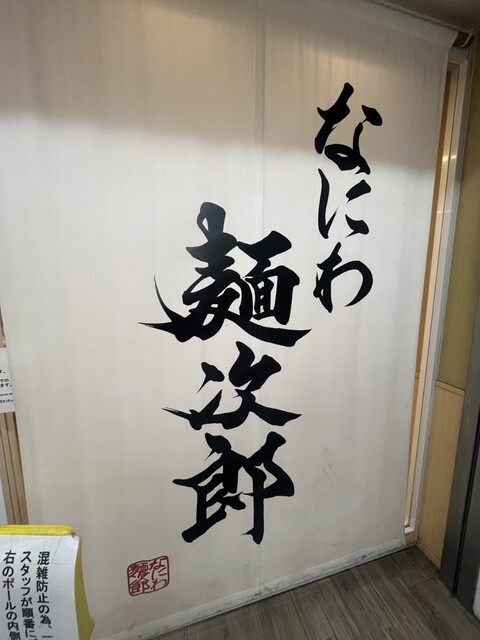 なにわ
麺次郎
なにわ
麺次郎
混雑防止の為、一
スタッフが順番に
右のポールの内側